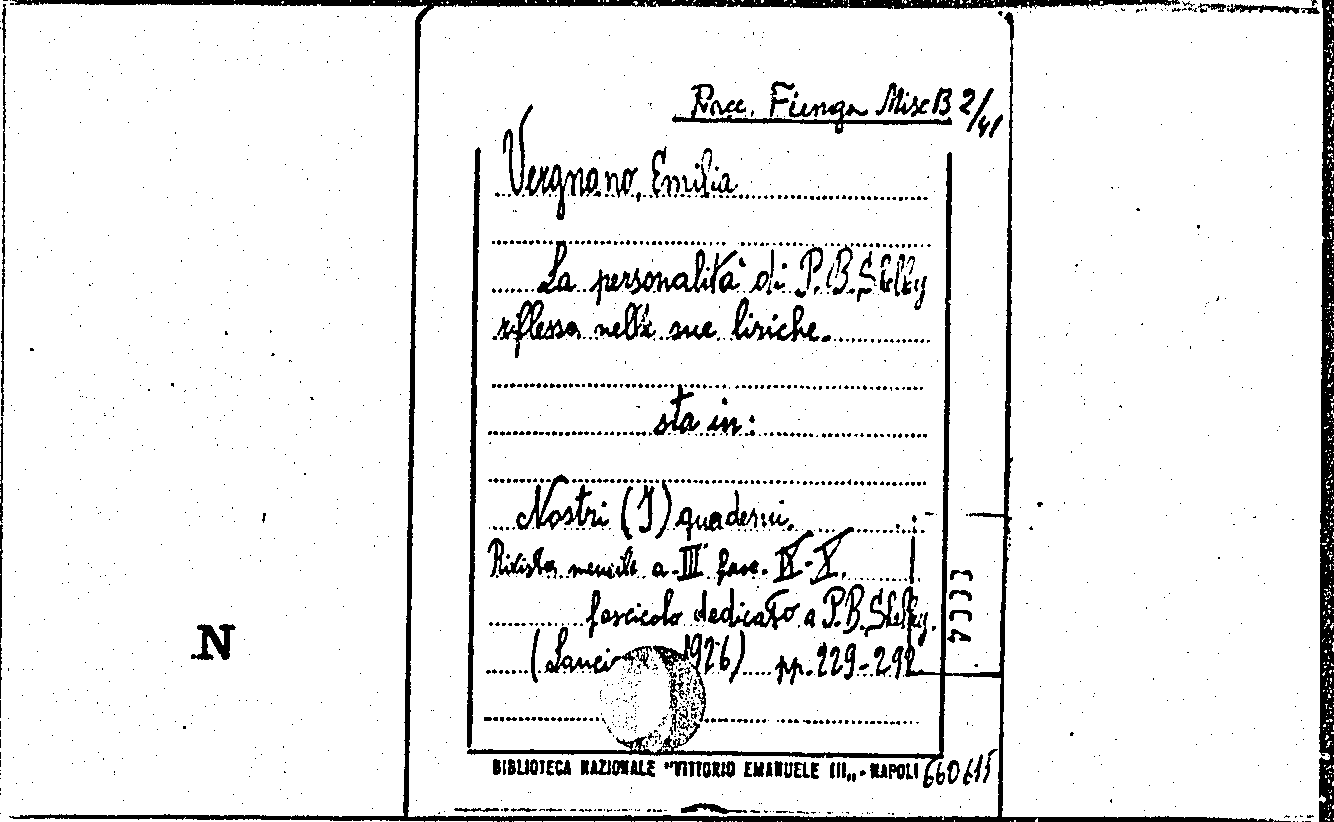 Racc. Fienga Misc B 2/41
Vergnano, Emilia
La personalità di P. B. Shelley
riflessa nelle sue liriche.
sta in:
Nostri (I) quaderni.
Rivista mensile a. III fasc. IX-X.
fascicolo dedicato a P. B. Shelley.
( 1926) pp. 229-292
N
BIBLIOTECA NAZIONALE "VITTORIO EMANUELE III„ - NAPOLI 660615